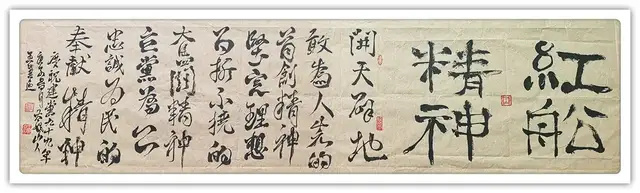 紅船
精神
開天辟地
敢為人先的
首創精神
堅定理想
百折不撓的
奮鬪精神
立黨為公
忠誠為民的
奉獻精神
慶祝建黨九十九年